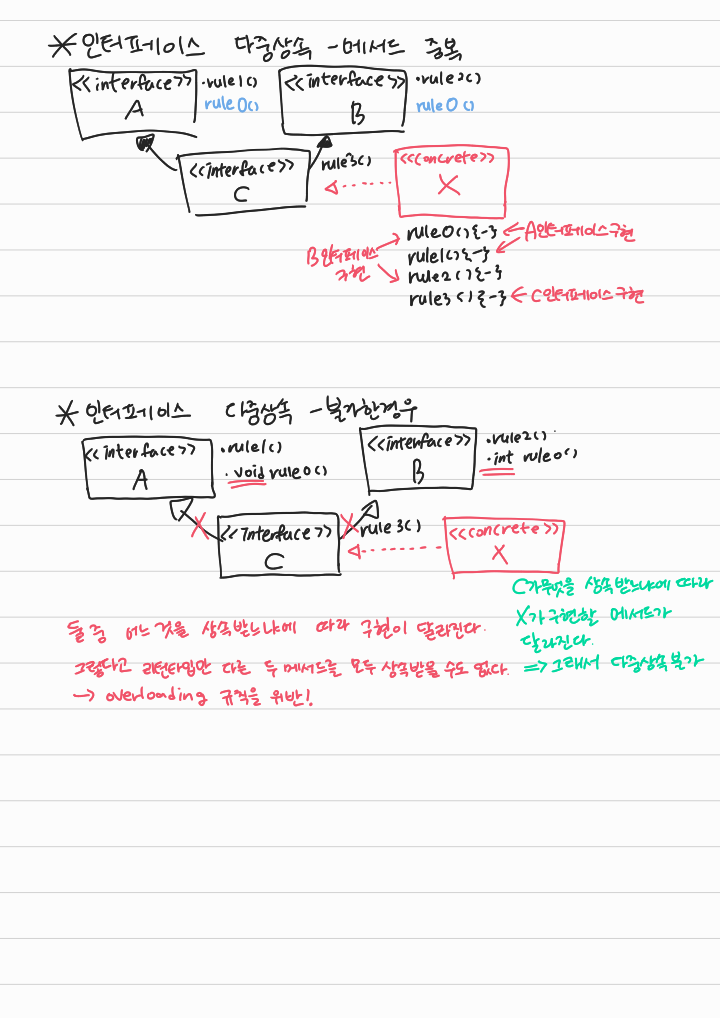 * 인터페이스 다중상속 - 메서드 중복
<<interface>> A
·rule1()
rule0()
<<interface>> B
·rule2()
rule0()
<<interface>> C
rule3()
<<concrete>> X
rule0(){-}
rule1(){-}
rule2(){-}
rule3(){-}
A인터페이스구현
B인터페이스
구현
C인터페이스구현
* 인터페이스 다중상속 - 불가한경우
<<interface>> A
·rule1()
·void rule0()
<<interface>> B
·rule2()
·int rule0()
<<interface>> C
rule3()
<<concrete>> X
C가무엇을 상속받느냐에 따라
X가구현할 메서드가
달라진다.
=> 그래서 다중상속불가
둘 중 어느것을 상속받느냐에 따라 구현이 달라진다.
그렇다고 리턴타입만 다른 두 메서드를 모두 상속받을 수도 없다.
→ overloading 규칙을 위반!